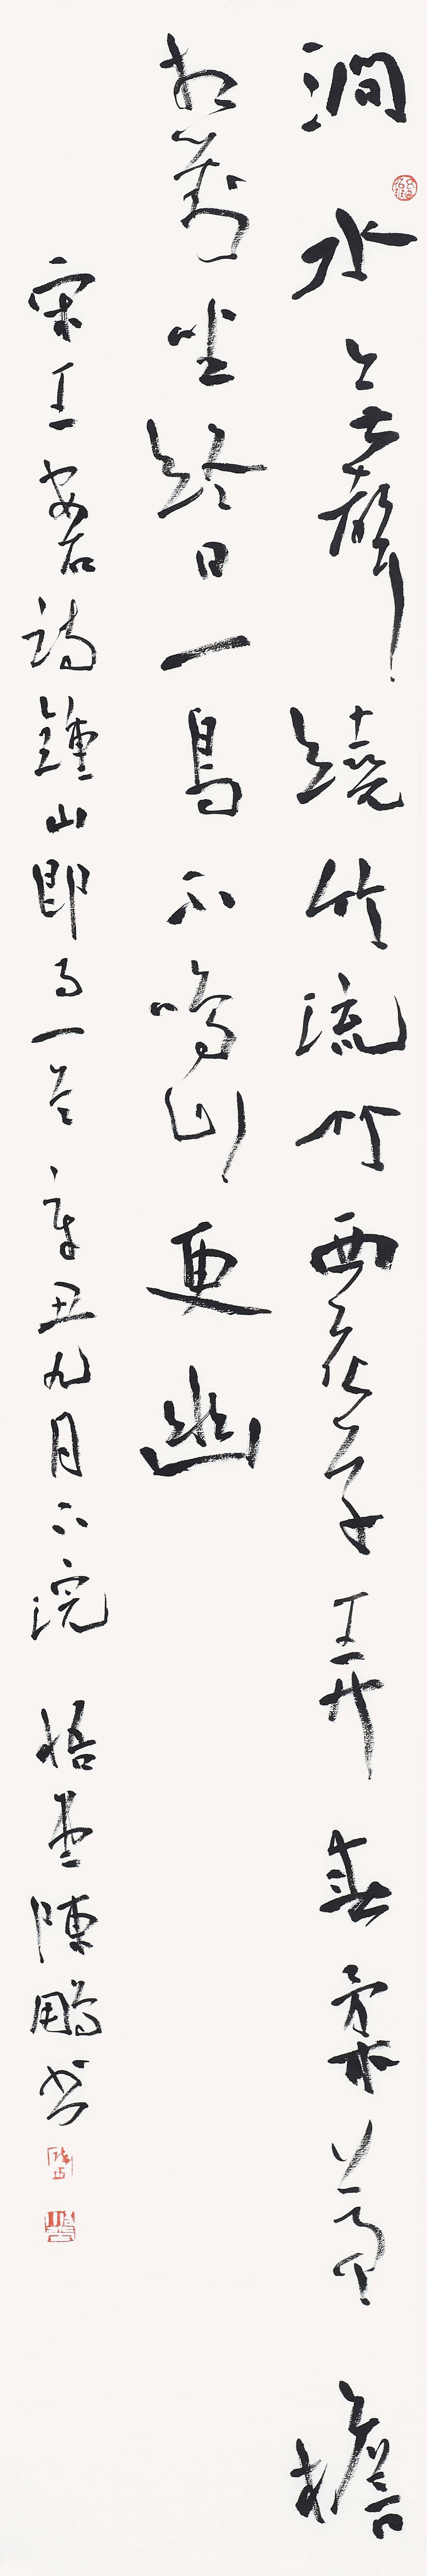 澗水無聲繞竹流竹西花草弄春柔茅檐
相對坐終日一鳥不鳴山更幽
宋王安石詩鍾山即事一首辛丑九月下浣 悟堂陳鵬書